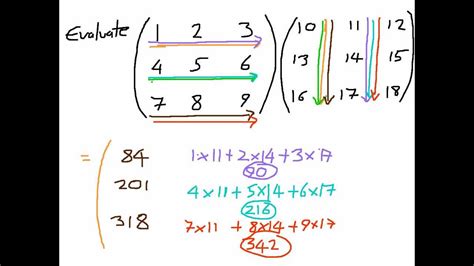 Evaluate ( 1 2 3 ) ( 10 11 12 )
4 5 6 13 14 15
7 8 9 16 17 18
= ( 84 1×11+2×14+3×17
90
201 4×11+5×14+6×17
216
318 7×11+8×14+9×17
342